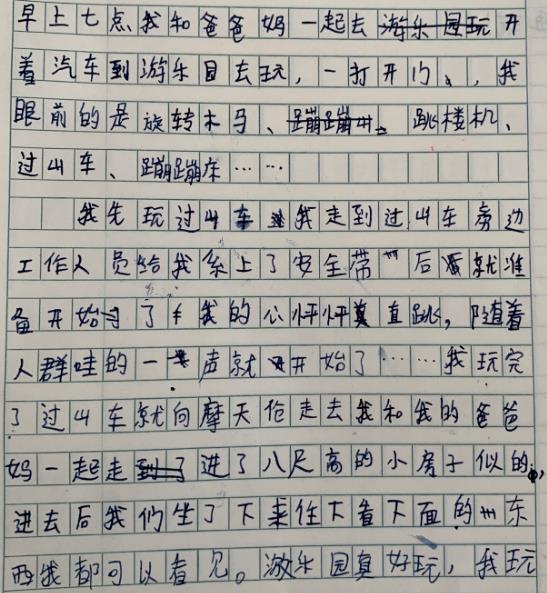 早上七点我和爸爸妈一起去游乐园玩开
着汽车到游乐园去玩，一打开门、，我
眼前的是旋转木马、蹦蹦床。跳楼机、
过山车、蹦蹦床……
我先玩过山车我走到过山车旁边
工作人员给我系上了安全带后就准
备开始了我的心怦怦直跳，随着
人群哇的一声就开始了……我玩完
了过山车就向摩天伦走去我和我的爸爸
妈一起走到了进了八尺高的小房子似的，
进去后我们坐了下来往下看下面的东
西我都可以看见。游乐园真好玩，我玩